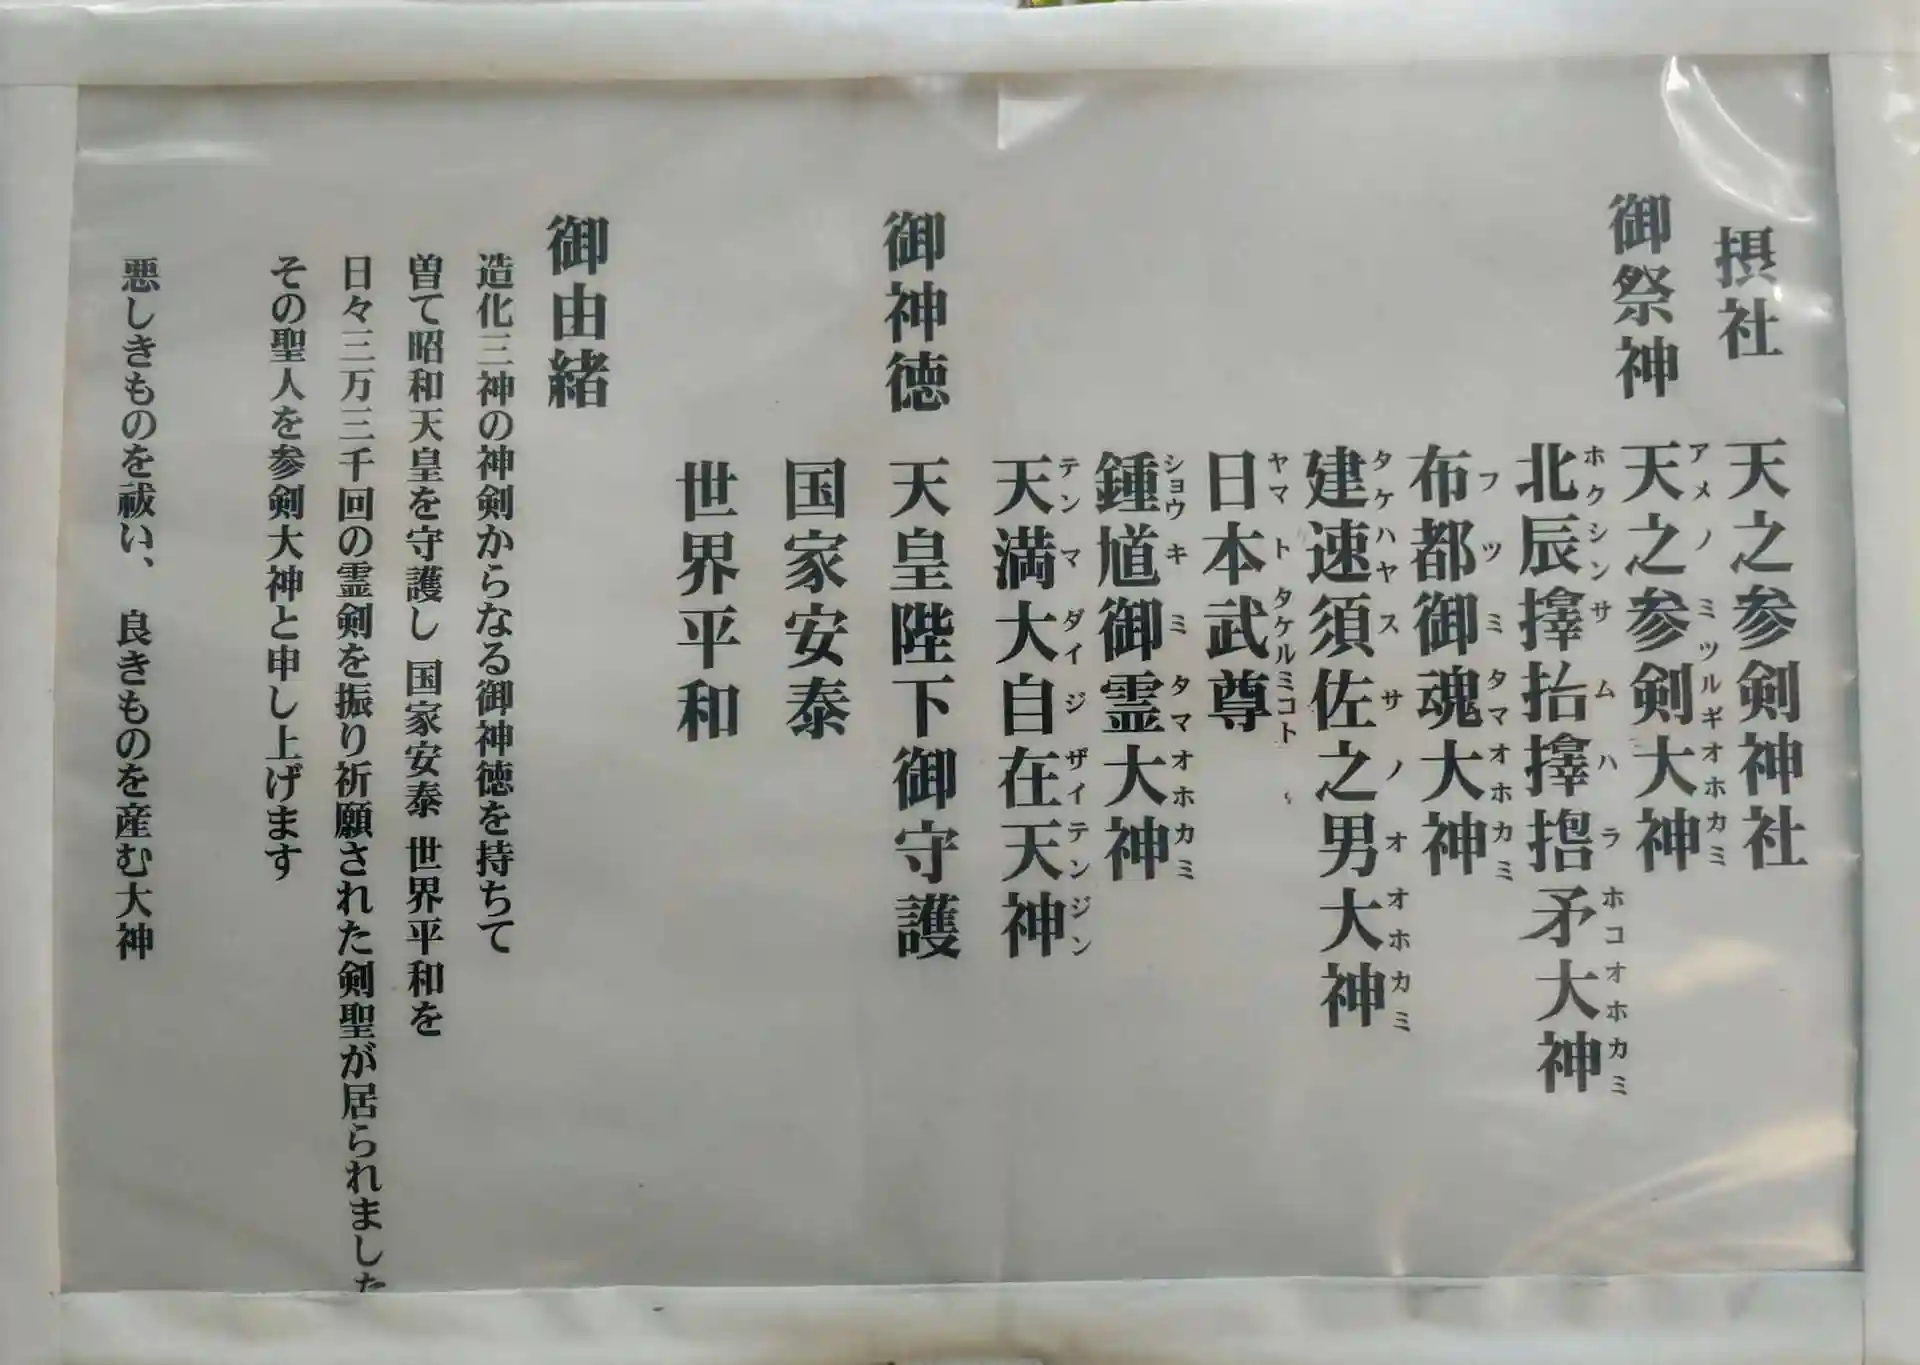 摂社 天之参剣神社
御祭神 天之参剣大神
アメノミツルギオホカミ
北辰擇抬擇揯矛大神
ホクシンサムハラホコオホカミ
布都御魂大神
フツミタマオホカミ
建速須佐之男大神
タケハヤスサノオオホカミ
日本武尊
ヤマトタケルミコト
鍾馗御霊大神
ショウキミタマオホカミ
天満大自在天神
テンマダイジザイテンジン
御神徳 天皇陛下御守護
国家安泰
世界平和
御由緒
造化三神の神剣からなる御神徳を持ちて
曽て昭和天皇を守護し 国家安泰 世界平和を
日々三万三千回の霊剣を振り祈願された剣聖が居られました
その聖人を参剣大神と申し上げます
悪しきものを祓い、 良きものを産む大神